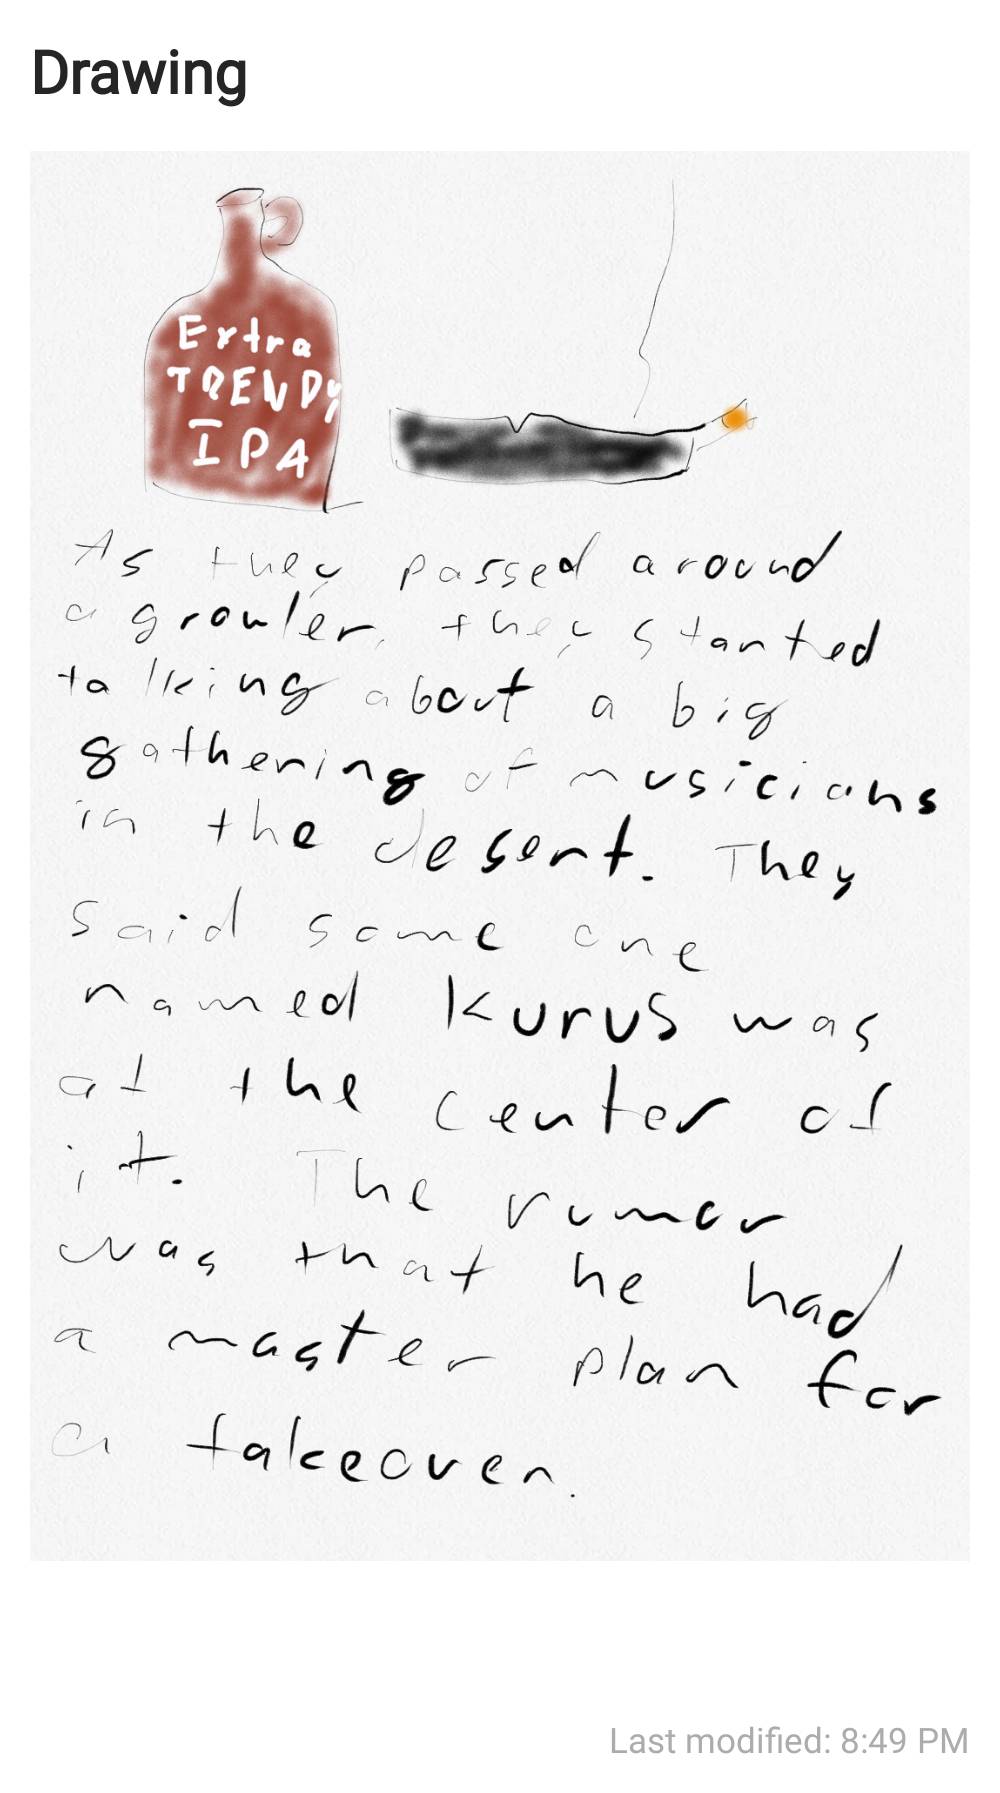 Drawing
Extra
TRENDY
IPA
As they passed around
a growler, they started
talking about a big
gathering of musicians
in the desert. They
said some one
named Kurus was
at the center of
it. The rumor
was that he had
a master plan for
a takeover.
Last modified: 8:49 PM